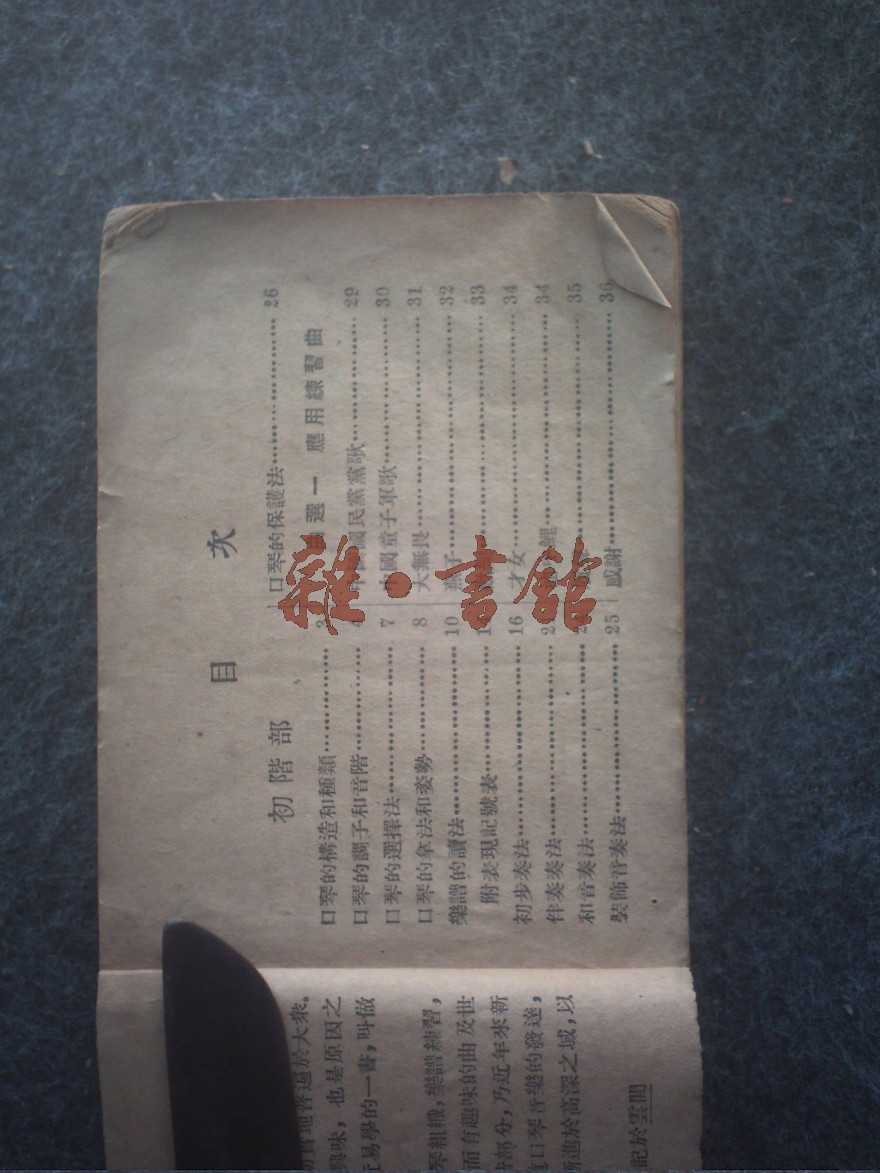 目 次
初階部
口琴的構造和種類 3
口琴的調子和音階 4
口琴的選擇法 7
口琴的拿法和姿勢 8
樂譜的讀法 10
附表現記號表
初步奏法 16
伴奏奏法
和音奏法
裝飾音奏法 25
口琴的保護法 26
曲選一 應用練習曲
國民黨黨歌 29
中國童子軍歌 30
大無畏 31
燕子 32
33
才女 34
34
35
感謝 36
地普遍於大衆。
興味，也是原因之
易學的一書，叫做
琴組織，樂譜練習，
而有趣味的曲及世
部分，乃近年來新
口琴音樂的發達，
漸進於高深之域，以
記於雲間